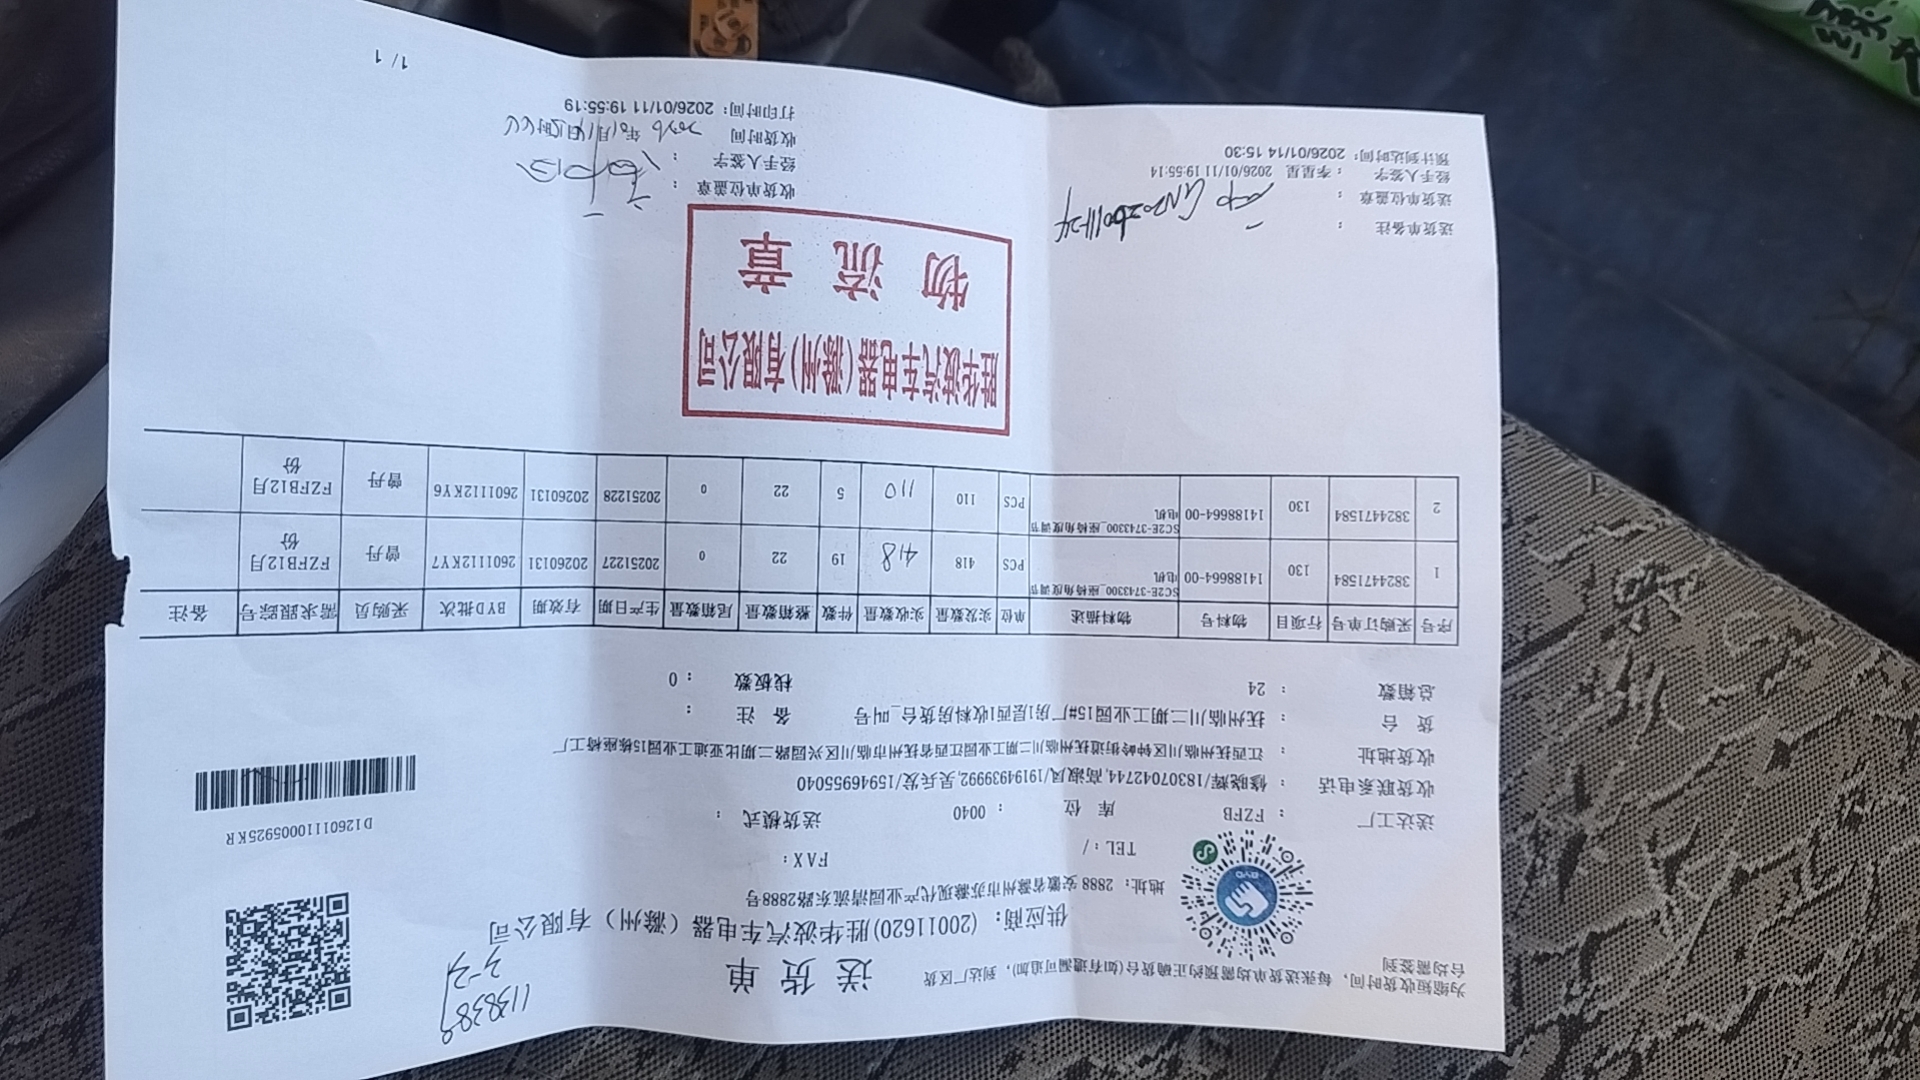 为缩短收货时间，每张送货单均需预约正确货台(如有遗漏可追加)，到达厂区货
台均需签到
送货单
1138388
供应商：(20011620)胜华波汽车电器（滁州）有限公司
地址：2888 安徽省滁州市苏滁现代产业园清流东路2888号
TEL：/ FAX：
BYD
D12601110005925KR
送达工厂：FZFB 库位：0040 送货模式：
收货联系电话：修晓辉/18307042744,高淑凤/19194939992,吴兵发/15946955040
收货地址：江西抚州临川区钟岭街道抚州临川二期工业园江西省抚州市临川区兴园路二期比亚迪工业园15栋座椅工厂
货台：抚州临川二期工业园15#厂房1层西1收料房货台_叫号 备注：
总箱数：24 栈板数：0
序号 采购订单号 行项目 物料号 物料描述 单位 实发数量 实收数量 件数 整箱数量 尾箱数量 生产日期 有效期 BYD批次 采购员 需求跟踪号 备注
1 3824471584 130 14188664-00 SC2E-3743300_座椅角度调节电机 PCS 418 418 19 22 0 20251227 20260131 2601112KY7 曾丹 FZFB12月份
2 3824471584 130 14188664-00 SC2E-3743300_座椅角度调节电机 PCS 110 110 5 22 0 20251228 20260131 2601112KY6 曾丹 FZFB12月份
胜华波汽车电器（滁州）有限公司
物流章
送货单备注：
送货单位盖章：
经手人签字：李星星 2026/01/11 19:55:14
预计到达时间：2026/01/14 15:30
收货单位盖章：
经手人签字：
收货时间 年 月 日 时
打印时间：2026/01/11 19:55:19
1/1